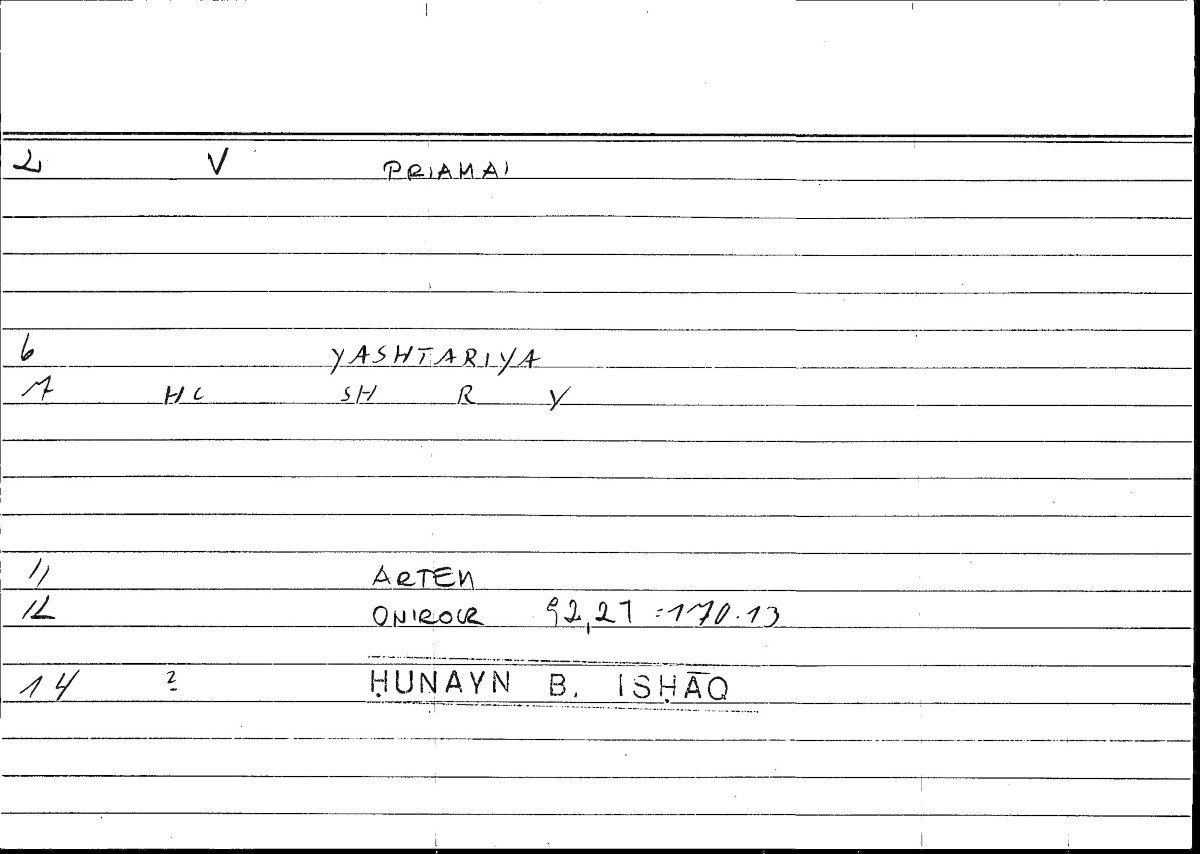 2 V PRIAMAI
6 YASHTARIYA
7 HC SH R Y
11 ARTEM
12 ONIROCR 92,27 = 170.13
14 2 ḤUNAYN B. ISḤĀQ